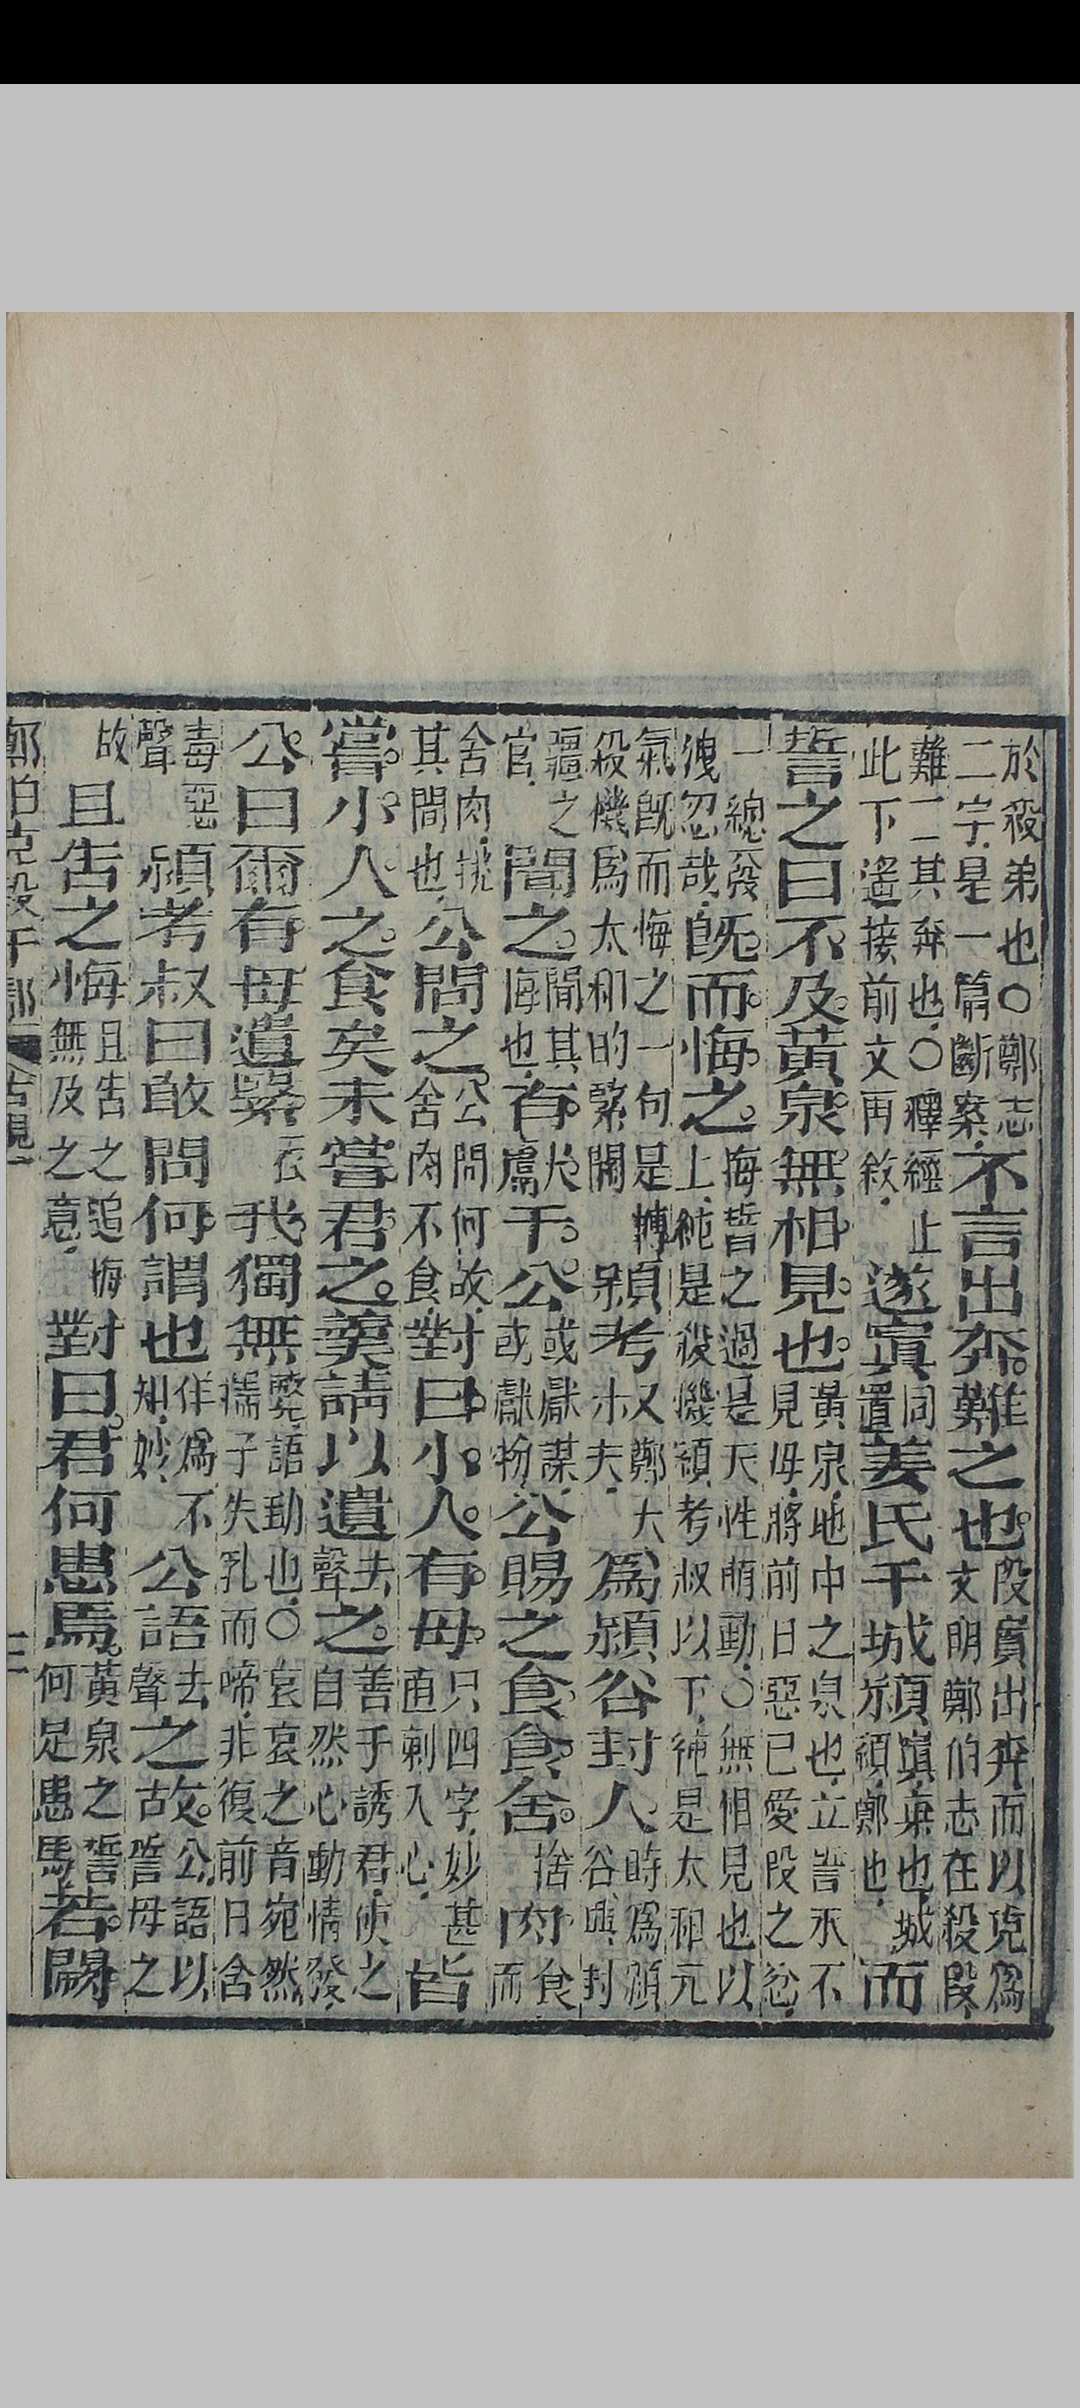 於殺弟也○鄭志
二字是一篇斷案不言出奔難之也段實出奔而以克爲
文明鄭伯志在殺段
難言其奔也○釋經止
此下遙接前文再敘遂寘同置姜氏于城潁寘棄也城潁鄭地而
誓之曰不及黃泉無相見也黃泉地中之泉也立誓永不
見母將前日惡己愛段之忿
一總發
洩忍哉既而悔之悔誓之過是天性萌動○無相見也以
上純是殺機潁考叔以下純是太和元
氣既而悔之一句是轉
殺機爲太和的緊關潁考叔鄭大夫爲潁谷封人時爲潁
谷典封
疆之
官聞之聞其悔也有獻于公或獻謀或獻物公賜之食食舍捨肉食
而
舍肉挑
其問也公問之公問何故舍肉不食對曰小人有母只四字妙甚直刺入心皆
嘗小人之食矣未嘗君之羹請以遺去聲之善于誘君使之
自然心動情發
公曰爾有母遺繄衣我獨無繄語助也○哀哀之音宛然
孺子失乳而啼非復前日含
毒惡
聲潁考叔曰敢問何謂也佯爲不知妙公語去聲之故公語以
古誓母之
故且告之悔且告之追悔無及之意對曰君何患焉黃泉之誓何足患焉若闕
鄭伯克段于鄢 古觀一 三